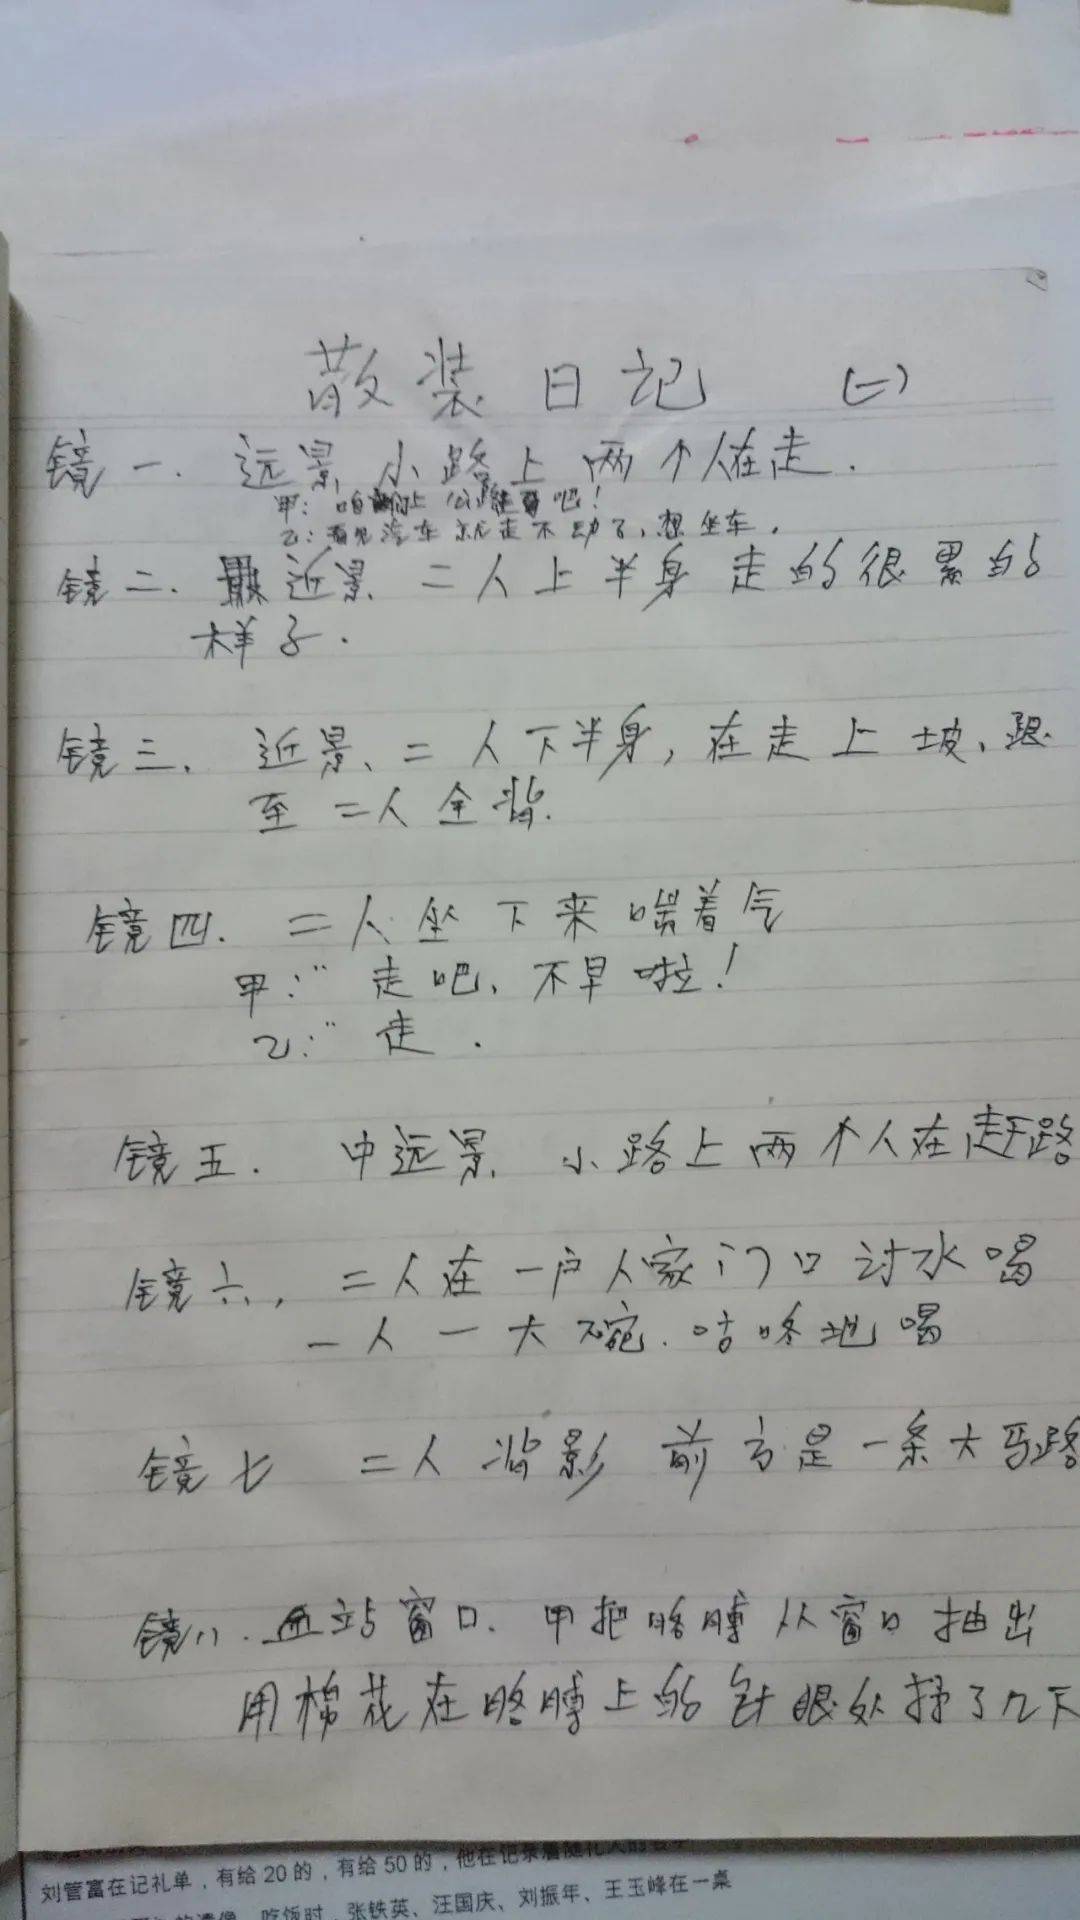 散装日记 (一)
镜一. 远景 小路上两个人在走.
甲: 咱们上公路吧!
乙: 看见汽车就走不动了, 想坐车.
镜二. 最近景 二人上半身 走的很累的
样子.
镜三、近景、二人下半身, 在走上坡、跟
至二人全背.
镜四. 二人坐下来喘着气
甲:“走吧、不早啦!
乙:“走.
镜五. 中远景 小路上两个人在赶路
镜六, 二人在一户人家门口讨水喝
一人一大碗. 咕咚地喝
镜七 二人背影 前方是一条大马路
镜八. 血站窗口. 甲把胳膊从窗口抽出
用棉花在胳膊上的针眼处揉了几下
刘管富在记礼单，有给20的，有给50的，他在记录着随礼人的名字
吃饭时，张铁英、汪国庆、刘振年、王玉峰在一桌